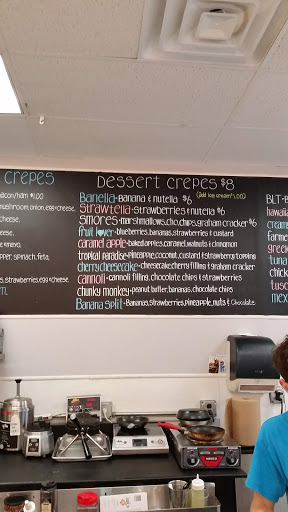 crepes
bacon/ham $1.00
mushroom, onion, egg & cheese
cheese
cheese
pper, spinach, feta,
strawberries, egg & cheese
Dessert crepes $8
Banella - Banana & nutella $6 (Add ice cream $1.00)
Strawtella - strawberries & nutella $6
Smores - marshmallows, cho. chips, graham cracker $6
fruit lover - blueberries, bananas, strawberries & custard
caramel apple - baked apples, caramel, walnuts & cinnamon
tropical paradise - pineapple, coconut, custard & strawberry topping
cherry cheesecake - cheesecake, cherry filling & graham cracker
cannoli - cannoli filling, chocolate chips & strawberries
chunky monkey - peanut butter, bananas, chocolate chips
Banana split - Bananas, strawberries, pineapple, nuts & chocolate
BLT - B
hawaiia
cream
farme
greek
tuna
chick
tusc
mex